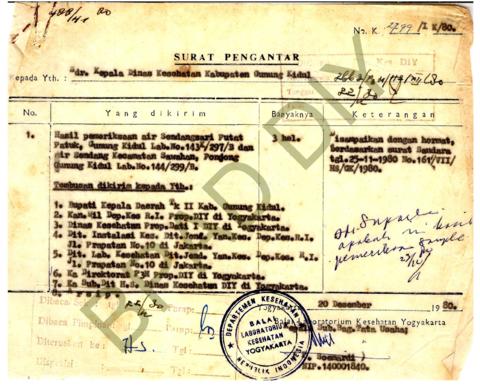 No. K. 799/I K/80.
SURAT PENGANTAR
Kepada Yth. : Sdr. Kepala Dinas Kesehatan Kabupaten Gunung Kidul
No. Yang dikirim Banyaknya Keterangan
1. Hasil pemeriksaan air Sendangsari Putat 3 hal. Disampaikan dengan hormat,
Patuk, Gunung Kidul Lab.No.143/297/B dan berdasarkan surat Saudara
air Sendang Kecamatan Sawahan, Ponjong tgl.25-11-1980 No.161/VII/
Gunung Kidul Lab.No.144/299/B. Hs/GK/1980.
Tembusan dikirim kepada Yth.:
1. Bupati Kepala Daerah Tk II Kab. Gunung Kidul.
2. Kan.Wil Dep.Kes R.I. Prop.DIY di Yogyakarta.
3. Dinas Kesehatan Prop.Dati I DIY di Yogyakarta.
4. Dit. Instalasi Kes. Dit.Jend. Yan.Kes. Dep.Kes.R.I.
Jl. Prapatan No.10 di Jakarta.
5. Dit. Lab. Kesehatan Dit.Jend. Yan.Kes. Dep.Kes.R.I.
Jl. Prapatan No.10 di Jakarta.
6. Ka Direktorat P3M Prop.DIY di Yogyakarta.
Ka Sub.Dit H.S. Dinas Kesehatan DIY di Yogyakarta.
Yogyakarta 20 Desember 1980.
Balai Laboratorium Kesehatan Yogyakarta
Sub.Bag.Tata Usaha
Dibaca
Paraf:
Diteruskan ke :
Tgl :
Hs.
DEPARTEMEN KESEHATAN
BALAI
LABORATORIUM
KESEHATAN
YOGYAKARTA
REPUBLIK INDONESIA
Soenardi )
NIP.140001840.
BPAD DIY